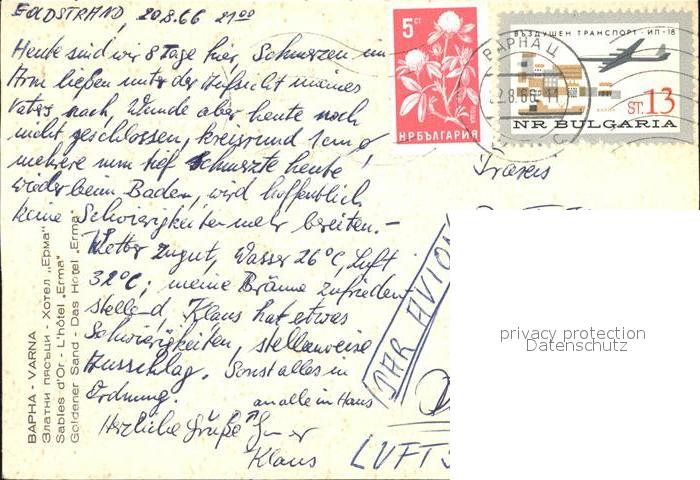 GOLDSTRAND, 20.8.66 21⁰⁰
Heute sind wir 8 Tage hier, Schmerzen im
Arm ließen unter der Aufsicht meines
Vaters nach, Wunde aber heute noch
nicht geschlossen, kreisrund 1 cm ø
mehrere mm tief schmerzte heute
wieder beim Baden, wird hoffentlich
keine Schwierigkeiten mehr bereiten.–
Wetter zu gut, Wasser 26°C, Luft
32°C; meine Bräune zufrieden-
stellend, Klaus hat etwas
Schwierigkeiten, stellenweise
Ausschlag. Sonst alles in
Ordnung.
an alle im Haus
Herzliche Grüße
Klaus
ВАРНА - VARNA
Златни пясъци - Хотел „Ерма“
Sables d'Or - L'hôtel „Erma“
Goldener Sand - Das Hotel „Erma“
5 СТ
НР БЪЛГАРИЯ
ВЪЗДУШЕН ТРАНСПОРТ · ИЛ-18
ST. 13
NR BULGARIA
ВАРНА Ц
PAR AVION
LUFTS
privacy protection
Datenschutz